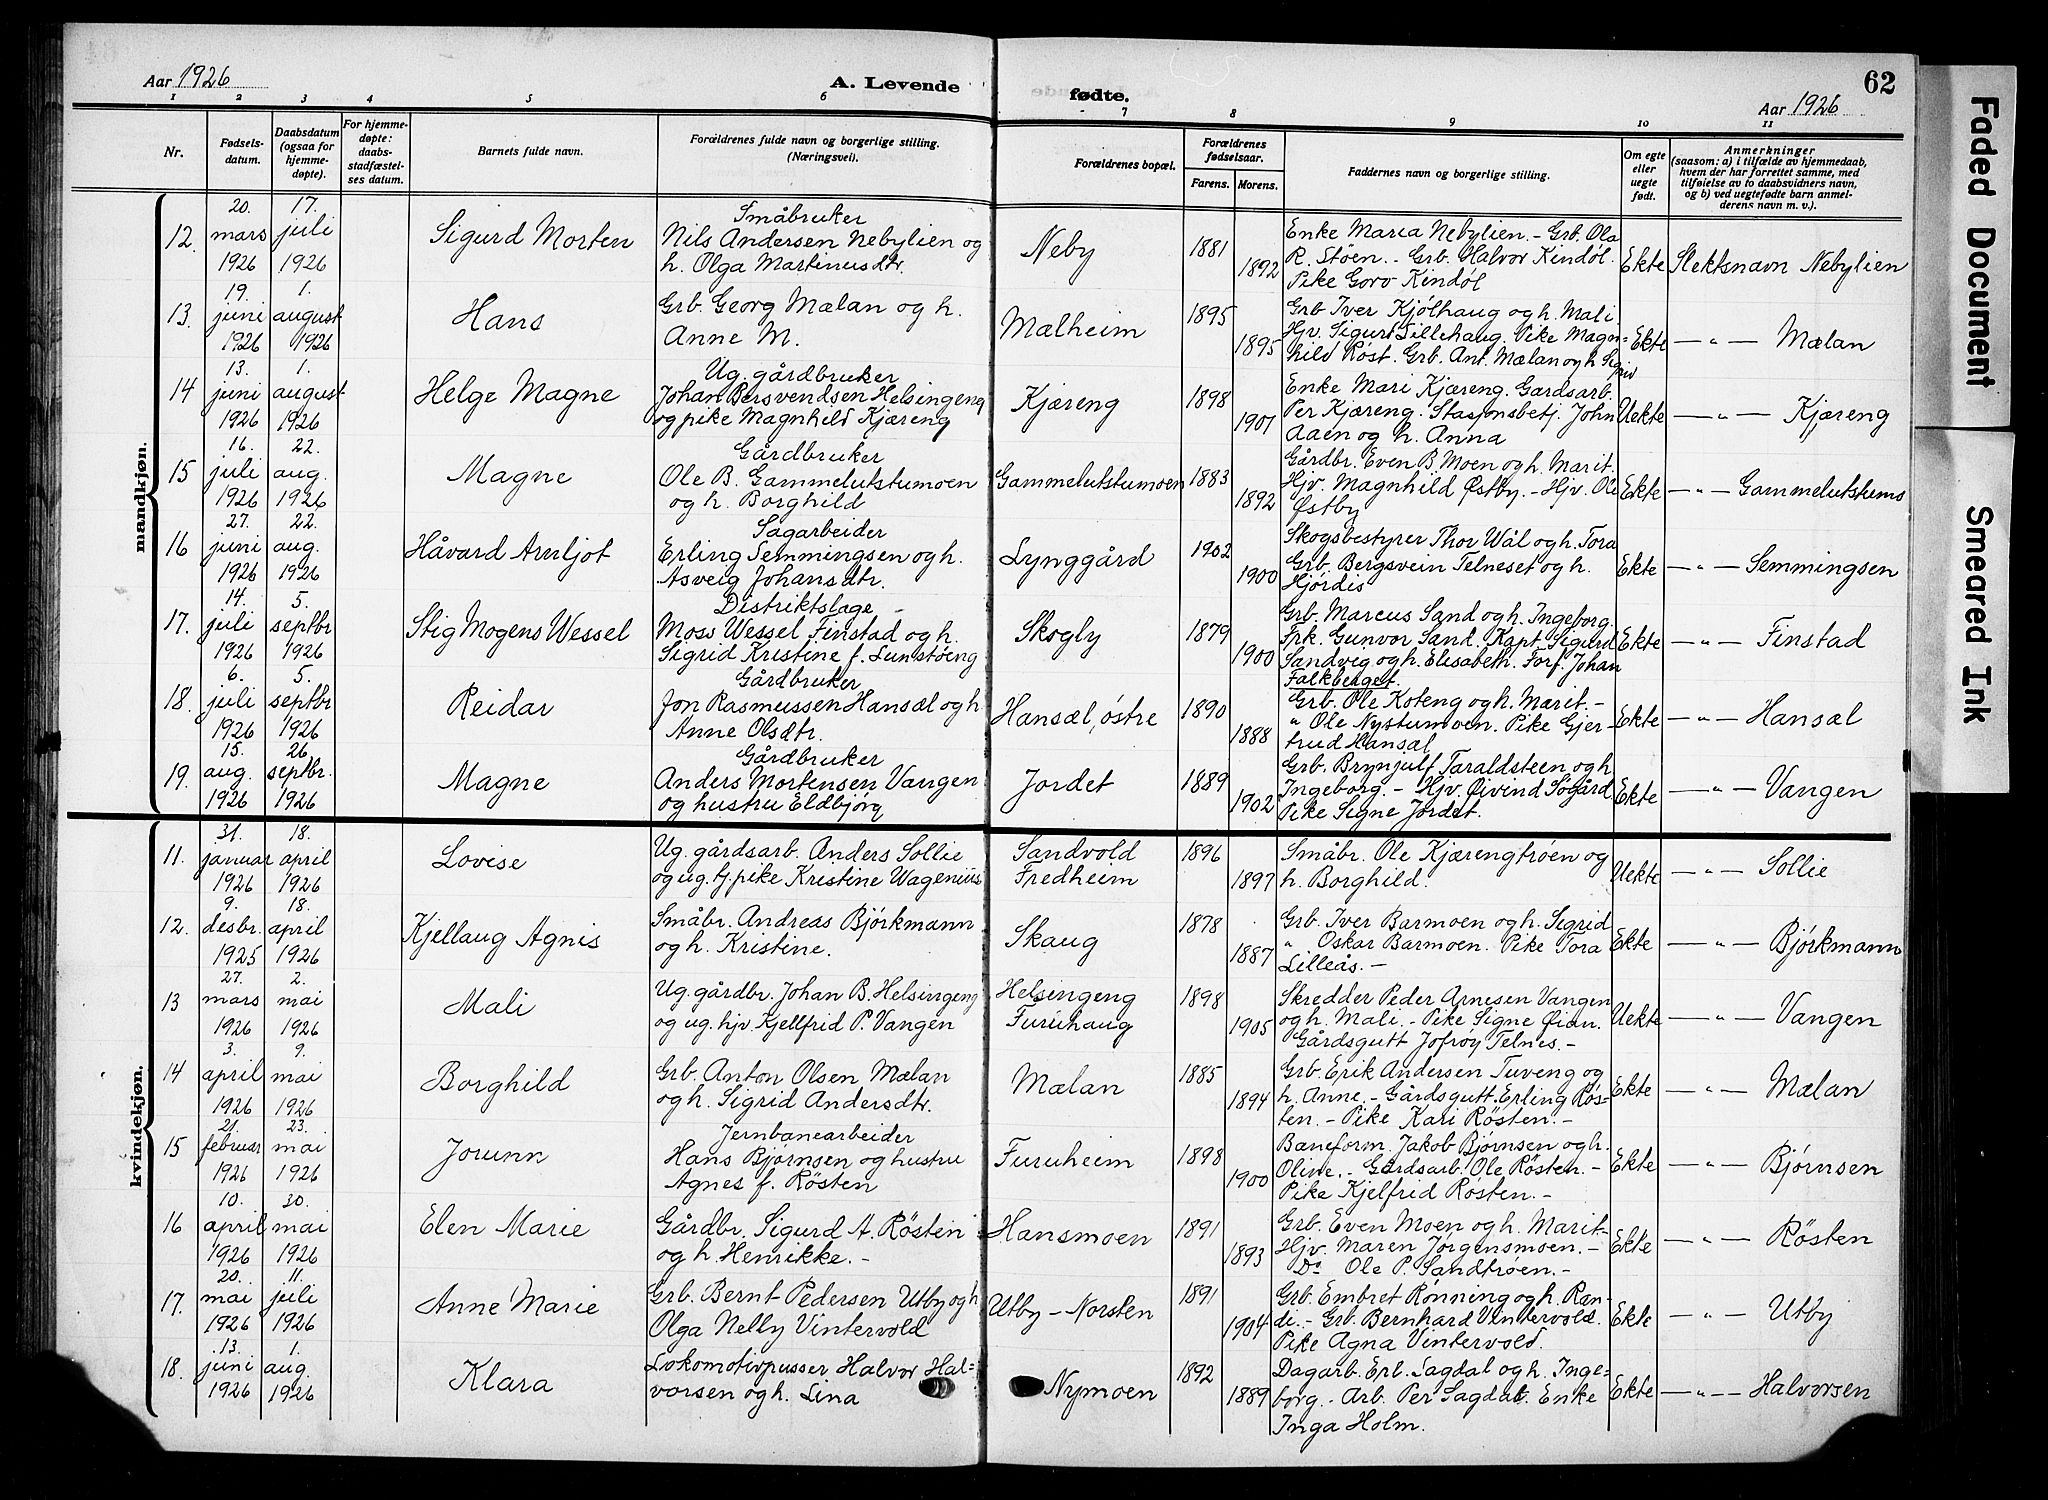 Aar 1926
A. Levende
fødte.
62
Aar 1926
1 2 3 4 5 6 7 8 9 10 11
Nr.
Fødsels-
datum.
Daabsdatum
(ogsaa for
hjemme-
døpte).
For hjemme-
døpte:
daabs-
stadfæstel-
ses datum.
Barnets fulde navn.
Forældrenes fulde navn og borgerlige stilling.
(Næringsvei).
Forældrenes bopæl.
Forældrenes
fødselsaar.
Farens. Morens.
Faddernes navn og borgerlige stilling.
Om egte
eller
uegte
født.
Anmerkninger
(saasom: a) i tilfælde av hjemmedaab,
hvem der har forrettet samme, med
tilføielse av to daabsvidners navn,
og b) ved uegtefødte barn anmel-
derens navn m. v.).
mandkjøn.
12. 20. mars 1926 17. juli 1926
Sigurd Morten
Småbruker
Nils Andersen Nebylien og
h. Olga Martinusdtr.
Neby
1881 1892
Enke Maria Nebylien. - Grb. Ola
R. Støen. - Grb. Halvor Kindöl.
Pike Goro Kindöl
Ekte
Slektsnavn Nebylien
13. 19. juni 1926 1. august 1926
Hans
Grb. Georg Mælan og h.
Anne M.
Mælheim
1895 1895
Grb. Iver Kjølhaug og h. Mali
Hjv. Sigurd Lillehaug. Pike Magn-
hild Røst. Grb. Ant. Mælan og h. Sigrid
Ekte
— " — Mælan
14 13. juni 1926 1. august 1926
Helge Magne
Ug. gårdbruker
Johan Persvendsen Helsingeng
og pike Magnhild Kjæreng
Kjæreng
1898 1901
Enke Mari Kjæreng. Gardsarb.
Per Kjæreng. Stasjonsbetj. John
Aaen og h. Anna
Uekte
— " — Kjæreng
15 16. juli 1926 22. aug. 1926
Magne
Gårdbruker
Ole B. Gammelutstumoen
og h. Borghild
Gammelutstumoen
1883 1892
Gårdbr. Even B. Moen og h. Marit.
Hjv. Magnhild Østby. - Hjv. Ole
Østby
Ekte
— " — Gammelutstumo
16 27. juni 1926 22. aug. 1926
Håvard Arnljot
Sagarbeider
Erling Semmingsen og h.
Asveig Johansdtr.
Lynggård
1902 1900
Skogsbestyrer Thor Wål og h. Tora
Grb. Bergsvein Telneset og h.
Hjórdis
Ekte
— " — Semmingsen
17. 14. juli 1926 5. septbr 1926
Stig Mogens Wessel
Distriktslæge -
Moss Wessel Finstad og h.
Sigrid Kristine f. Lunstøeng
Skogly
1879 1900
Grb. Marcus Sand og h. Ingeborg.
Frk. Gunvor Sand. Kapt. Sigurd
Sandvig og h. Elisabeth. Forf. Johan
Falkberget.
Ekte
— " — Finstad
18. 6. juli 1926 5. septbr 1926
Reidar
Gårdbruker
Jon Rasmussen Hansæl og h
Anne Olsdtr.
Hansæl, østre
1890 1888
Grb. Ole Koteng og h. Marit. -
" Ole Nystumoen. Pike Gjer-
trud Hansæl
Ekte
— " — Hansæl
19. 15. aug. 1926 26 septbr. 1926
Magne
Gårdbruker
Anders Mortensen Vangen
og hustru Eldbjørg
Jordet
1889 1902
Grb. Brynjulf Taraldsteen og h
Ingeborg. - Hjv. Øivind Søgård
Pike Signe Jordet.
Ekte
— " — Vangen
kvindekjøn.
11. 31. januar 1926 18. april 1926
Lovise
Ug. gårdsarb. Anders Sollie
og ug. tj. pike Kristine Wagenius
Sandvold
Fredheim
1896 1897
Småbr. Ole Kjærengtrøen og
h. Borghild.
Uekte
— " — Sollie
12. 9. desbr. 1925 18. april 1926
Kjellaug Agnis
Småbr. Andreas Bjórkmann
og h. Kristine.
Skaug
1878 1887
Grb. Iver Barmoen og h. Sigrid
" Oskar Barmoen. Pike Tora
Lilleås. -
Ekte
— " — Bjórkmann
13 27. mars 1926 2. mai 1926
Mali
Ug. gårdbr. Johan B. Helsingeng
og ug. hjv. Kjellfrid P. Vangen
Helsingeng
Furuhaug
1898 1905
Skredder Peder Arnesen Vangen
og h. Mali. - Pike Signe Øian.
Gårdsgutt Jofrøy Telnes. -
Uekte
— " — Vangen
14 3. april 1926 9. mai 1926
Borghild
Grb. Anton Olsen Mælan
og h. Sigrid Andersdtr.
Mælan
1885 1894
Grb. Erik Andersen Tuveng og
h. Anne. - Gårdsgutt. Erling Rös-
ten. - Pike Kari Rösten. -
Ekte
— " — Mælan
15 21. februar 1926 23. mai 1926
Jorunn
Jernbanearbeider
Hans Bjørnsen og hustru
Agnes f. Rösten
Furuheim
1898 1900
Baneform. Jakob Bjørnsen og h.
Oline. - Gardsarb. Ole Rösten. -
Pike Kjelfrid Rösten. -
Ekte
— " — Bjørnsen
16 10. april 1926 30. mai 1926
Elen Marie
Gårdbr. Sigurd A. Rösten
og h. Henrikke. -
Hansmoen
1891 1893
Grb. Even Moen og h. Marit. -
Hjv. Maren Jørgensmoen. -
Do Ole P. Sandtrøen. -
Ekte
— " — Rösten
17. 20. mai 1926 11. juli 1926
Anne Marie
Grb. Bernt Pedersen Utby og h
Olga Nelly Vintervold
Utby - Norsten
1891 1904
Grb. Embret Rønning og h. Ran-
di. - Grb. Bernhard Vintervold.
Pike Agna Vintervold.
Ekte
— " — Utby
18. 13. juni 1926 1. aug. 1926
Klara
Lokomotivpusser Halvor Hal-
vorsen og h. Lina
Nymoen
1892 1889
Dagarb. Erl. Sagdal og h. Inge-
borg. - Arb. Per Sagdal. Enke
Inga Holm.
Ekte
— " — Halvorsen
Faded Document
Smeared Ink